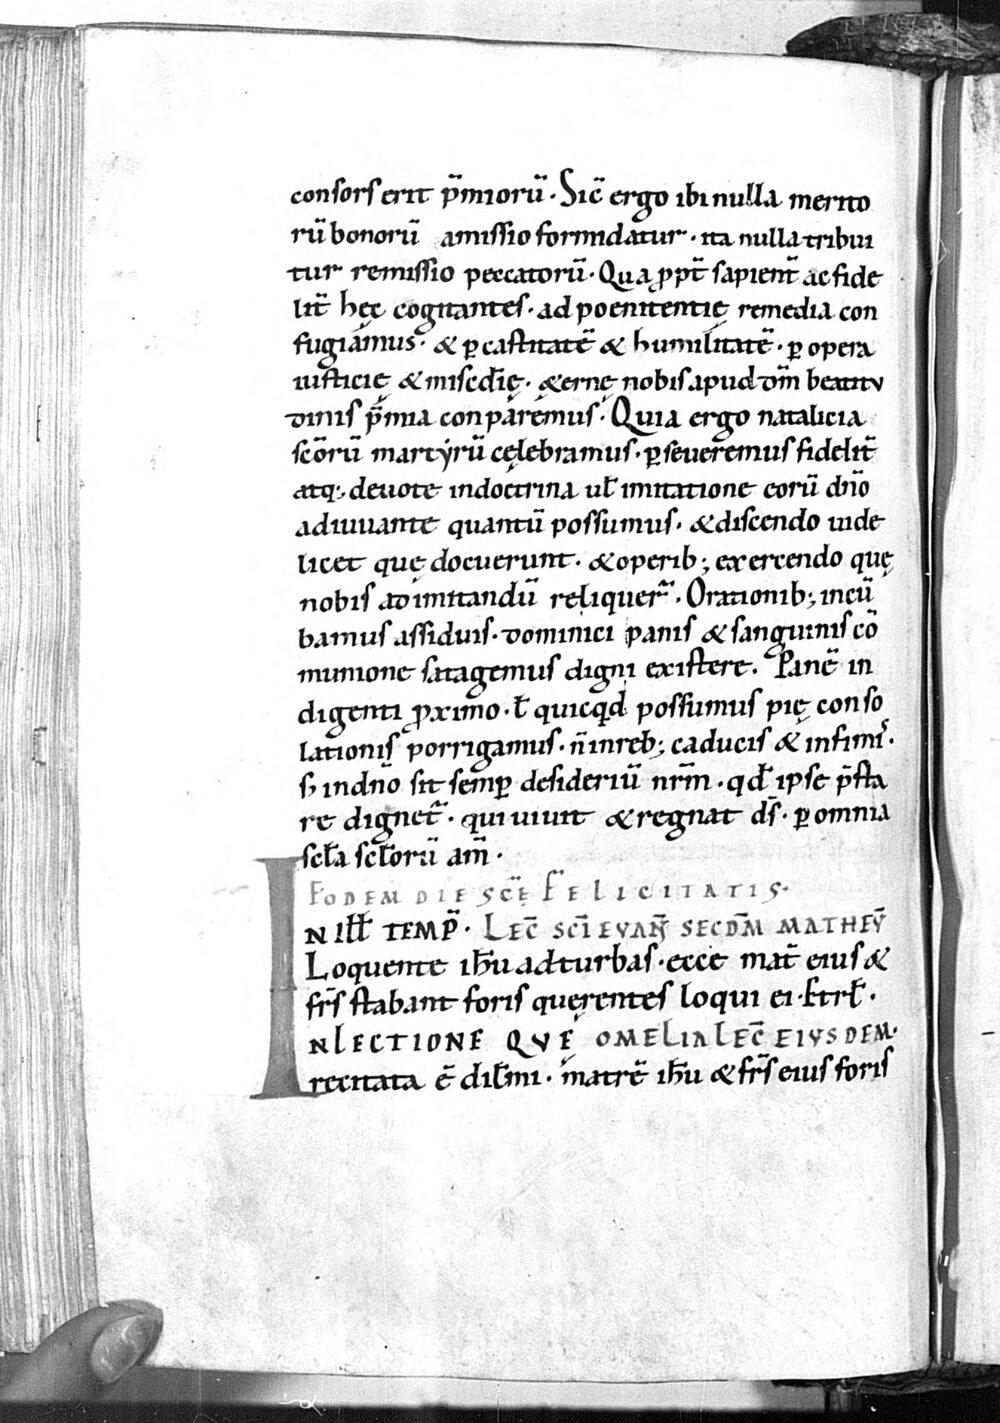 consors erit p̄mioru͂. Sic̄ ergo ibi nulla merito
ru͂ bonoru͂ amissio formidatur. ita nulla tribui
tur remissio peccatoru͂. Qua ꝓpt̄ sapient̄ ac fide
lit̄ hęc cogitantes. ad poenitentię remedia con
fugiamus. & ꝑ castitate͂ & humilitate͂. ꝑ opera
iusticię & misc̄dię. &ernę nobis apud dn̄m beatitu
dinis p̄mia conparemus. Quia ergo natalicia
sc̄oru͂ martyru͂ cęlebramus. ꝑseueremus fidelit̄
atq; deuote in doctrina ul̄ imitatione eoru͂ dn̄o
adiuuante quantu͂ possumus. & discendo uide
licet quę docuerunt. & operib; exercendo quę
nobis ad imitandu͂ reliquer̄. Orationib; incu͂
bamus assiduis. dominici panis & sanguinis co͂
munione satagemus digni existere. Pane͂ in
digenti ꝓximo. ł quicqd possumus pię conso
lationis porrigamus. n̄ in reb; caducis & infimis.
s; in dn̄o sit semꝑ desideriu͂ nr̄m. qd̄ ipse p̄sta
re dignet̄. qui uiuit & regnat ds̄. ꝑ omnia
scl̄a scl̄oru͂ am̄.
EODEM DIE SC̄Ę FELICITATIS.
IN ILL̄ TEMP̄. LEC̄ SCI EVANḠ SECDM̄ MATHEV̄
Loquente ih̄u ad turbas. ecce mat̄ eius &
fr̄s stabant foris quęrentes loqui ei. & rl̄.
IN LECTIONE QVĘ OMELIA LEC̄ EIVSDEM.
recitata ē dil̄mi. matre͂ ih̄u & fr̄s eius foris